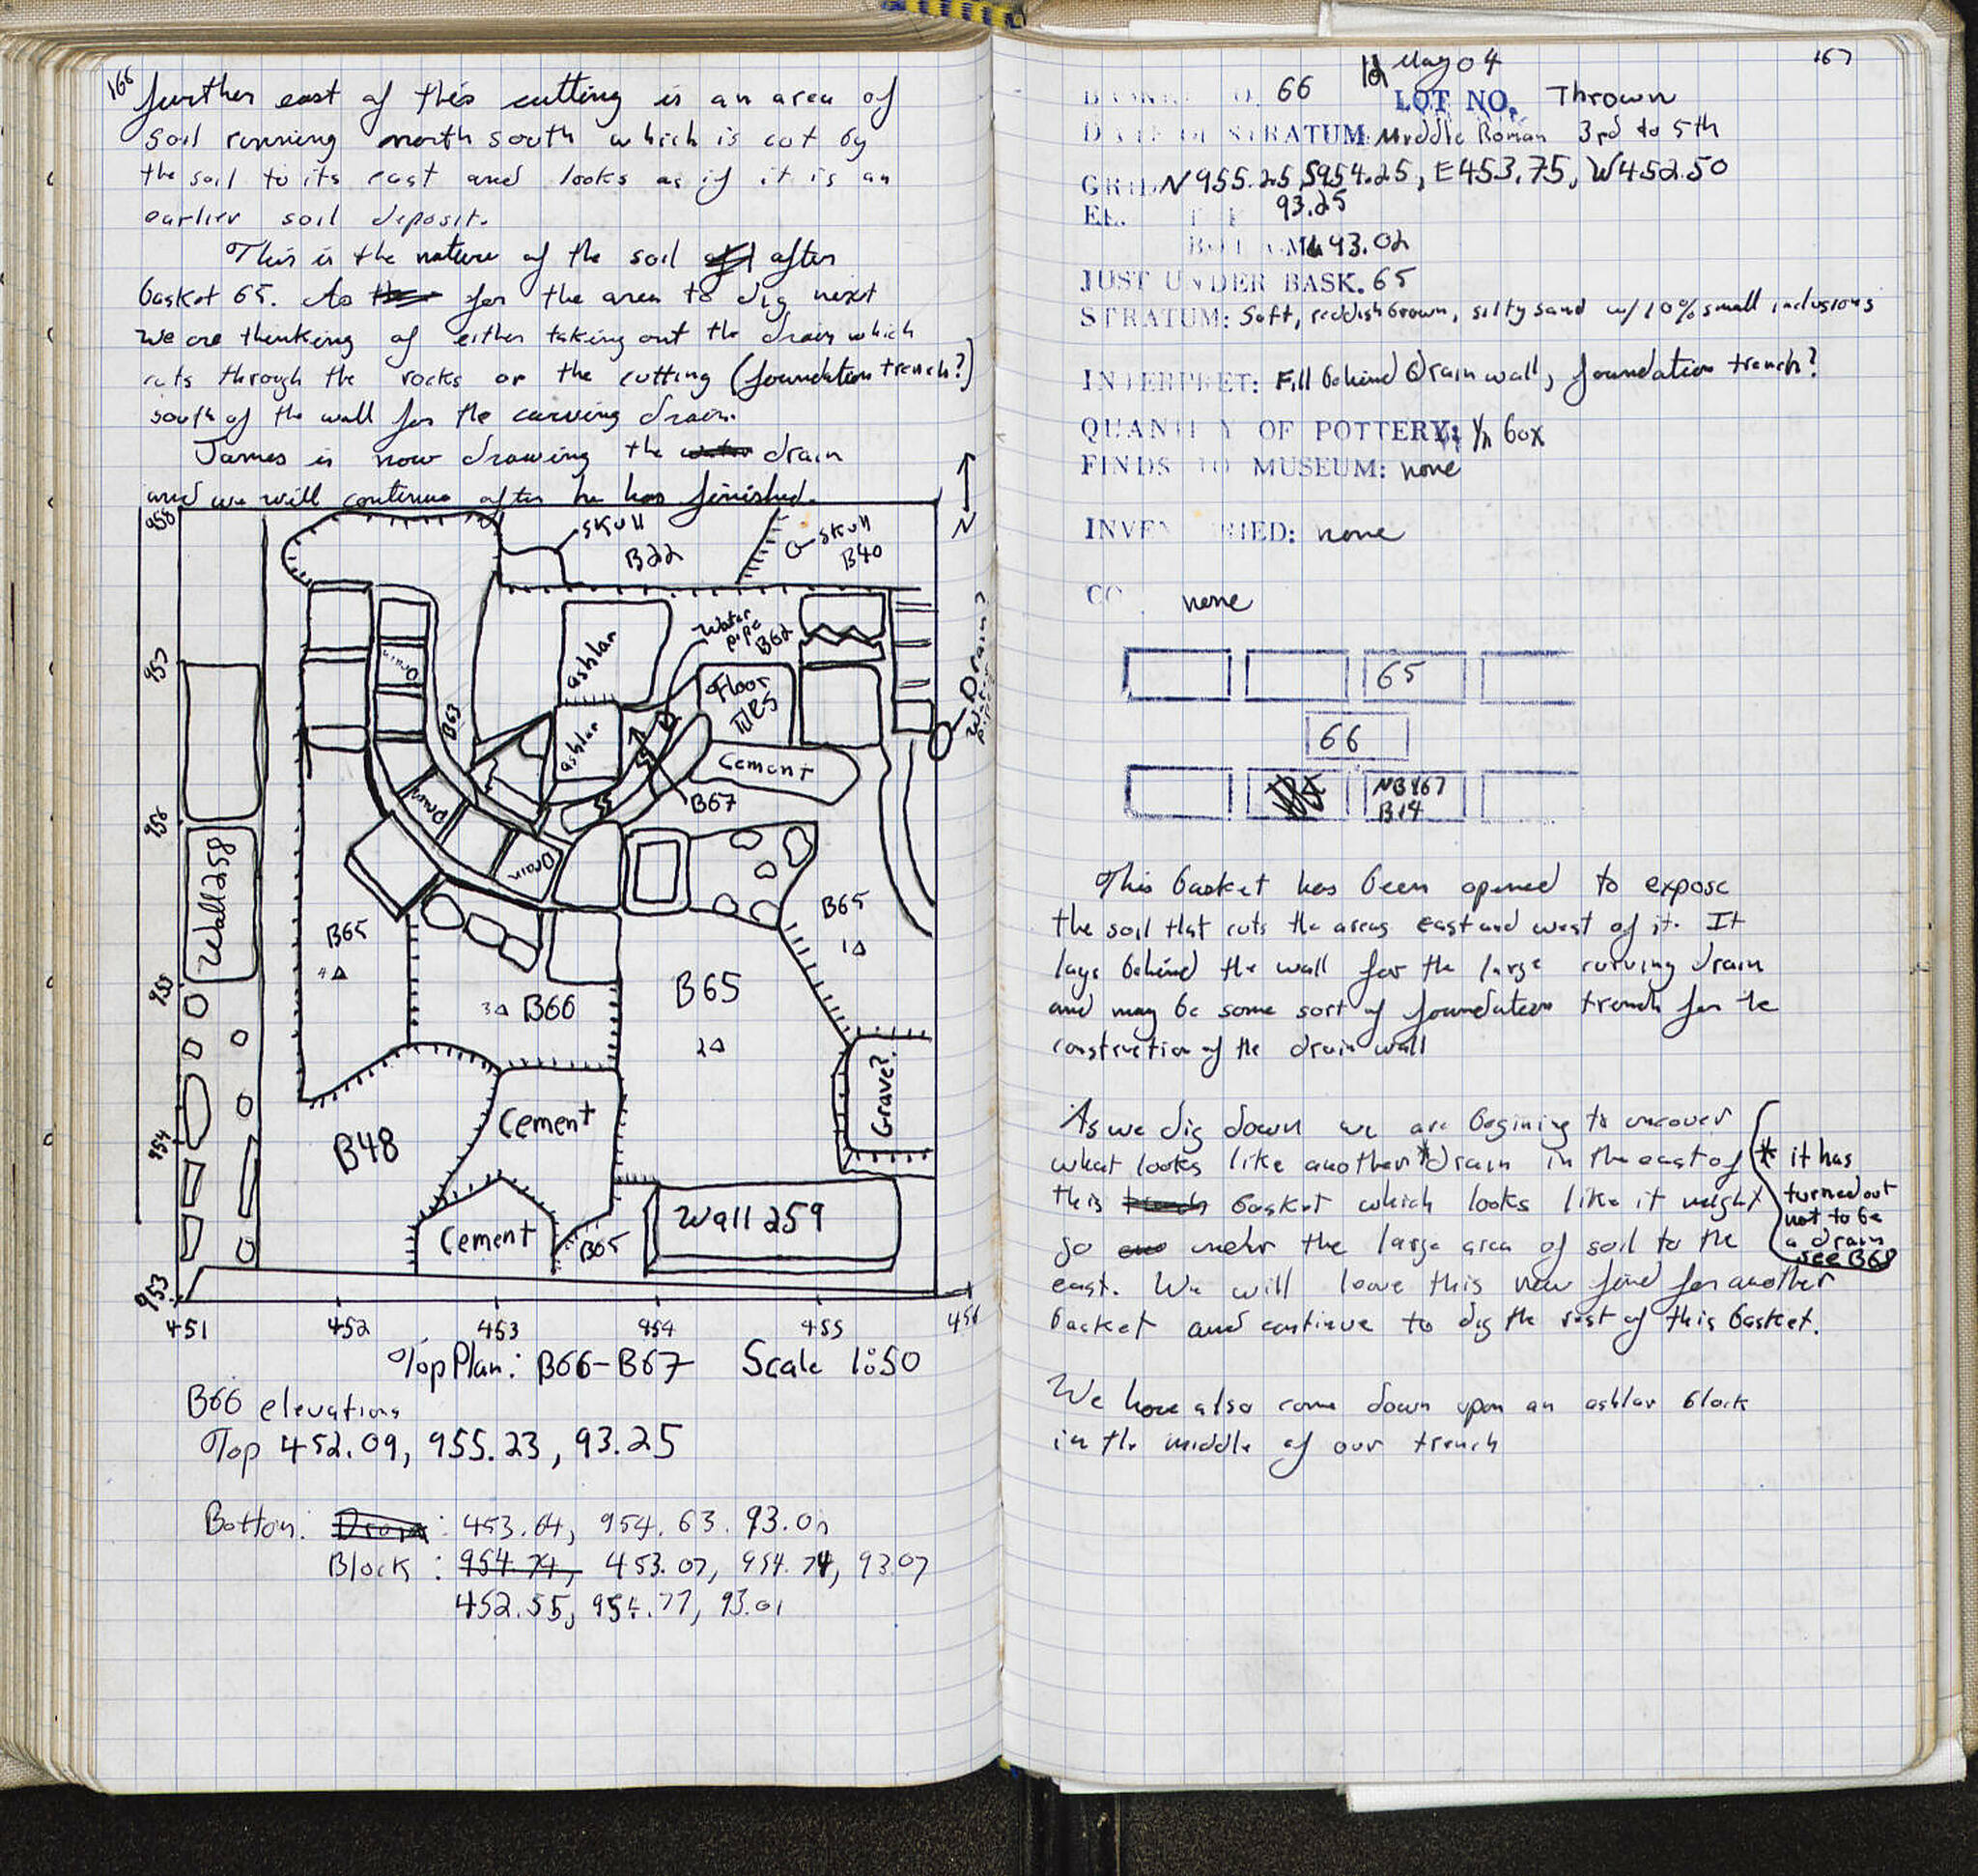 166
further east of this cutting is an area of
soil running north south which is cut by
the soil to its east and looks as if it is an
earlier soil deposit.
This is the nature of the soil after
basket 65. As for the area to dig next
we are thinking of either taking out the drain which
cuts through the rocks or the cutting (foundation trench?)
south of the wall for the curving drain.
James is now drawing the drain
and we will continue after he has finished.
958
957
956
955
954
953
N
skull
B22
skull
B40
Water pipe
B62
ashlar
ashlar
Floor
Tiles
Cement
Drain
B63
Drain
Drain
B67
Drain?
Wall 258
B65
4△
3△ B66
B65
2△
B65
1△
Grave?
B48
Cement
Cement
B65
Wall 259
451 452 453 454 455 456
Top Plan: B66-B67 Scale 1:50
B66 elevations
Top 452.09, 955.23, 93.25
Bottom: Drain: 453.64, 954.63. 93.02
Block: 954.74, 453.07, 954.74, 93.07
452.55, 954.77, 93.01
167
May 04
66 LOT NO. Thrown
DATE OF STRATUM: Middle Roman 3rd to 5th
GRID N955.25 S954.25, E453.75, W452.50
93.25
93.02
JUST UNDER BASK. 65
STRATUM: Soft, reddish brown, silty sand w/ 10% small inclusions
INTERPRET: Fill behind drain wall, foundation trench?
QUANTITY OF POTTERY: 1/2 box
FINDS TO MUSEUM: none
INVENTORIED: none
none
65
66
NB867
B14
This basket has been opened to expose
the soil that cuts the areas east and west of it. It
lays behind the wall for the large curving drain
and may be some sort of foundation trench for the
construction of the drain wall
As we dig down we are begining to uncover
what looks like another* drain in the east of
this basket which looks like it might
go under the large area of soil to the
east. We will leave this new find for another
basket and continue to dig the rest of this basket.
* it has
turned out
not to be
a drain
see B68
We have also come down upon an ashlar block
in the middle of our trench